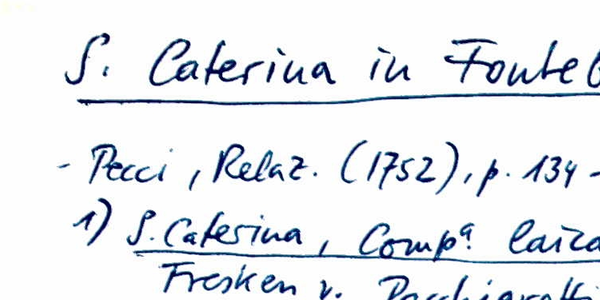 S. Caterina in Fonteb
- Pecci, Relaz. (1752), p. 134 -
1) S. Caterina, Compª laica
Fresken v. Pacchiarotti